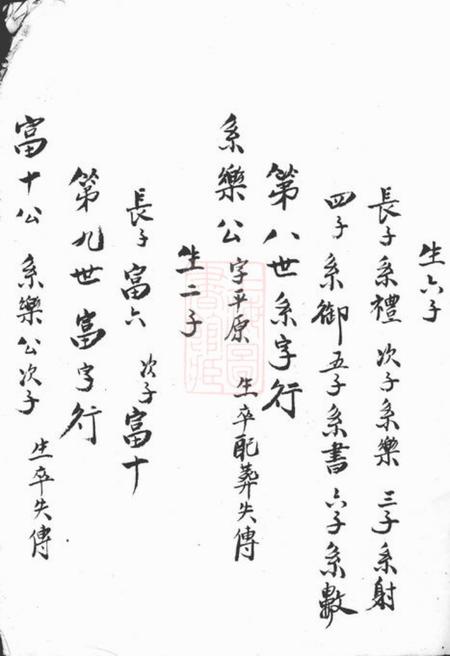 生六子
長子系禮 次子系樂 三子系射
四子系御 五子系書 六子系數
第八世系字行
系樂公字平原 生卒配葬失傳
生二子
長子富六 次子富十
第九世富字行
富十公 系樂公次子 生卒失傳